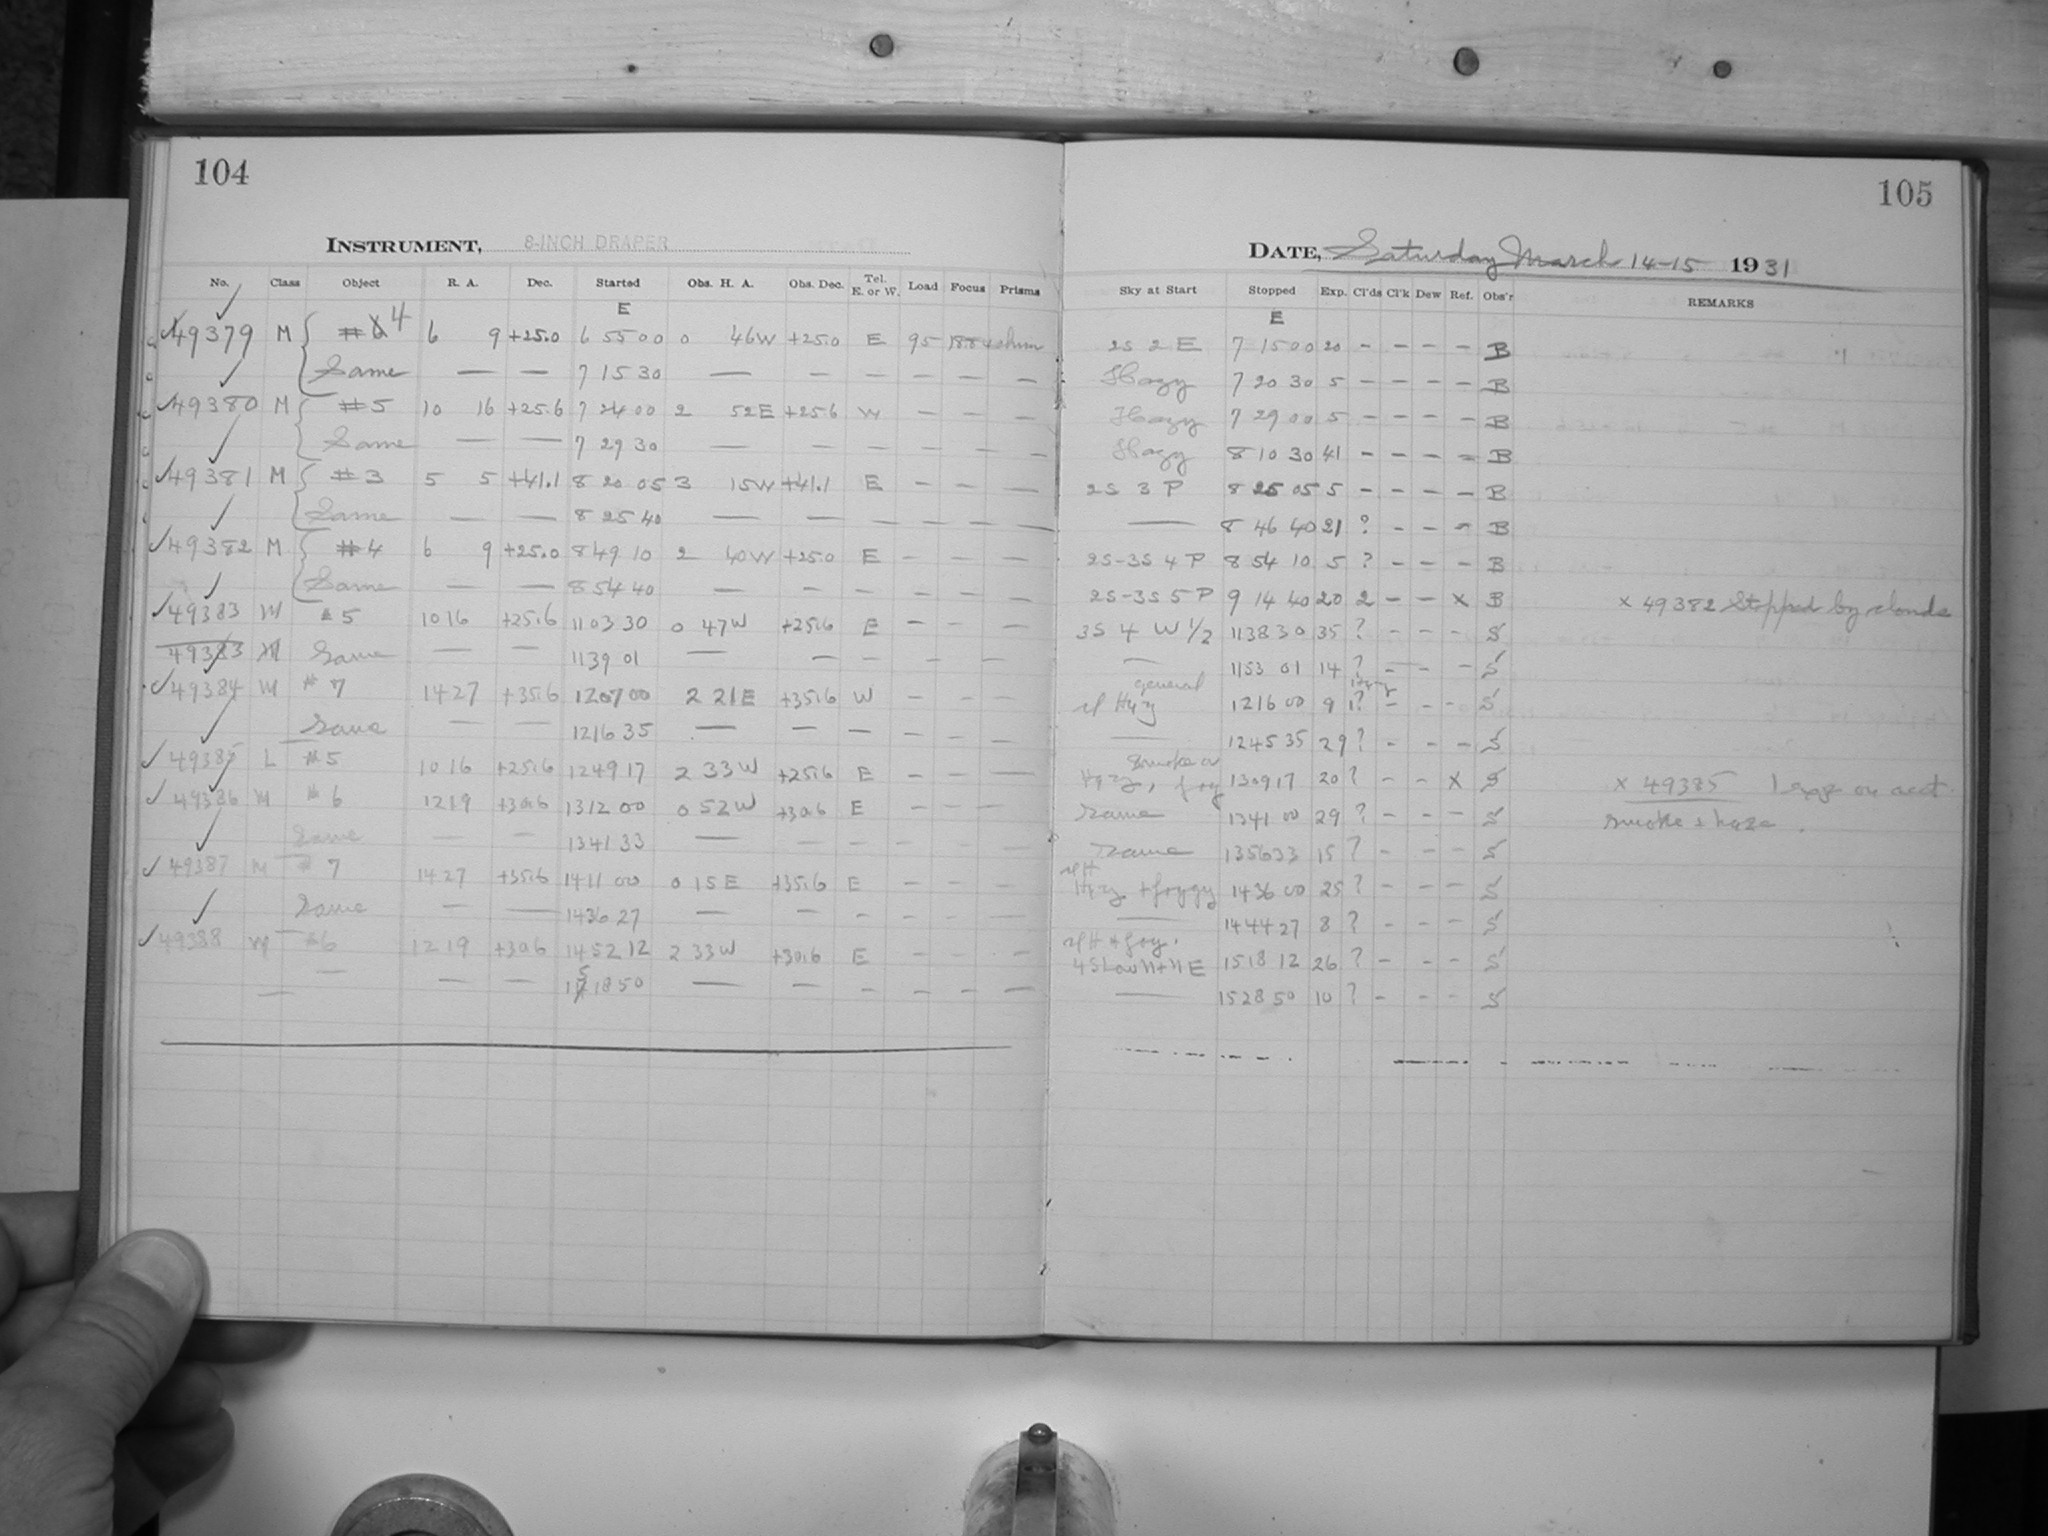 104
105
INSTRUMENT, 8-INCH DRAPER
DATE, Saturday March 14-15 1931
No. Class Object R. A. Dec. Started Obs. H. A. Obs. Dec. Tel. E. or W. Load Focus Prisms Sky at Start Stopped Exp. Cl'ds Cl'k Dew Ref. Obs'r REMARKS
E E
49379 M # 4 6 9 +25.0 6 55 00 0 46W +25.0 E 95 2S 2 E 7 15 00 20 - - - - B
Same — — 7 15 30 — — - - - - Hazy 7 20 30 5 - - - - B
49380 M #5 10 16 +25.6 7 24 00 2 52E +25.6 W - - - Hazy 7 29 00 5 - - - - B
Same — — 7 29 30 — — - - - - Hazy 8 10 30 41 - - - - B
49381 M #3 5 5 +41.1 8 20 05 3 15W +41.1 E - - - 2S 3 P 8 25 05 5 - - - - B
Same — — 8 25 40 — — - - - - — 8 46 40 21 ? - - - B
49382 M #4 6 9 +25.0 8 49 10 2 40W +25.0 E - - - 2S-3S 4 P 8 54 10 5 ? - - - B
Same — — 8 54 40 — — - - - - 2S-3S 5 P 9 14 40 20 2 - - x B x 49382 Stopped by clouds
49383 M #5 10 16 +25.6 11 03 30 0 47W +25.6 E - - - 3S 4 W 1/2 11 38 30 35 ? - - - S
49383 M Same — — 11 39 01 — — - - - - — 11 53 01 14 ? - - - S
49384 M #7 14 27 +35.6 12 07 00 2 21E +35.6 W - - - general Hzy 12 16 00 9 ? - - - S
Same — — 12 16 35 — — - - - - — 12 45 35 29 ? - - - S
49385 L #5 10 16 +25.6 12 49 17 2 33W +25.6 E - - - Hazy, smoke or fog 13 09 17 20 ? - - x S x 49385 1 exp on acct
49386 M #6 12 19 +30.6 13 12 00 0 52W +30.6 E - - - Same 13 41 00 29 ? - - - S smoke + haze.
Same — — 13 41 33 — — - - - - Same 13 56 33 15 ? - - - S
49387 M #7 14 27 +35.6 14 11 00 0 15E +35.6 E - - - Hzy + foggy 14 36 00 25 ? - - - S
Same — — 14 36 27 — — - - - - — 14 44 27 8 ? - - - S
49388 M #6 12 19 +30.6 14 52 12 2 33W +30.6 E - - - 15 18 12 26 ? - - - S
— — — — 15 18 50 — — - - - - — 15 28 50 10 ? - - - S